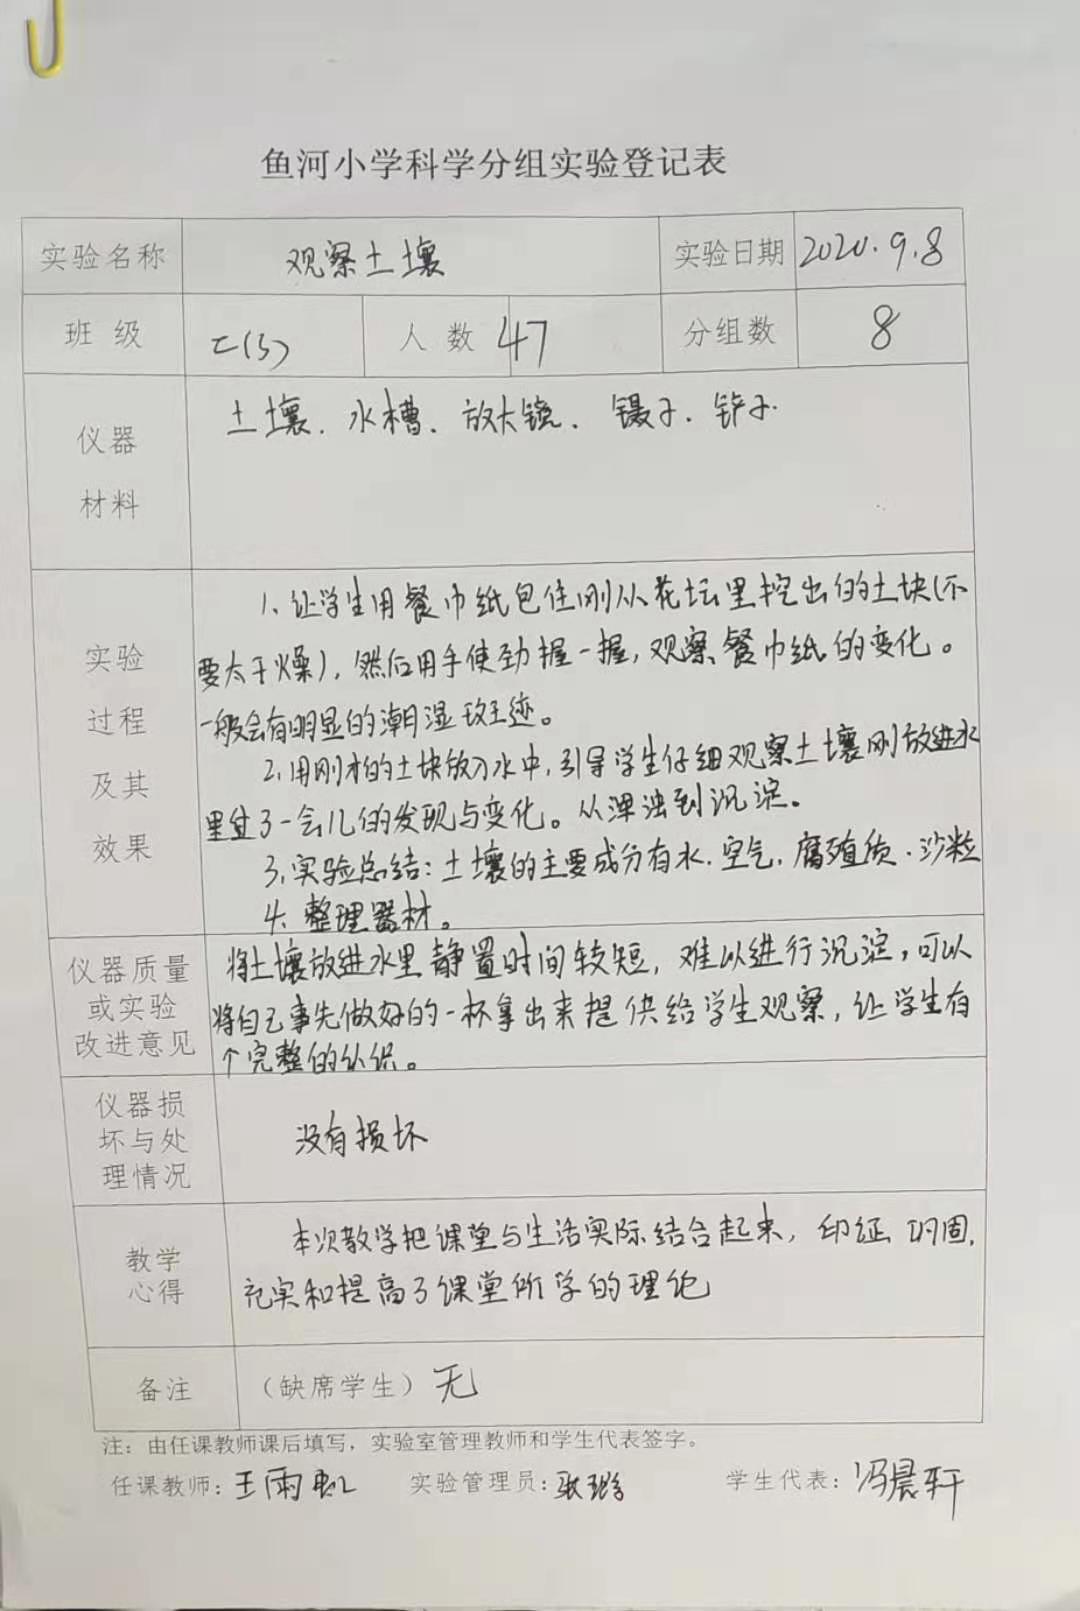 鱼河小学科学分组实验登记表
实验名称 观察土壤 实验日期 2020.9.8
班级 二(3) 人数 47 分组数 8
仪器材料 土壤、水槽、放大镜、镊子、铲子.
实验过程及其效果
1、让学生用餐巾纸包住刚从花坛里挖出的土块(不
要太干燥),然后用手使劲握一握,观察餐巾纸的变化。
一般会有明显的潮湿 迹。
2、用刚才的土块放入水中,引导学生仔细观察土壤刚放进水
里过了一会儿的发现与变化。从浑浊到沉淀。
3、实验总结:土壤的主要成分有水.空气.腐殖质.沙粒
4、整理器材。
仪器质量
或实验
改进意见
将土壤放进水里静置时间较短,难以进行沉淀,可以
将自己事先做好的一杯拿出来提供给学生观察,让学生有
个完整的认识。
仪器损
坏与处
理情况
没有损坏
教学
心得
本次教学把课堂与生活实际结合起来,印证 巩固,
充实和提高了课堂所学的理论
备注 (缺席学生) 无
注:由任课教师课后填写,实验室管理教师和学生代表签字。
任课教师:王雨虹 实验管理员:张 学生代表:冯晨轩